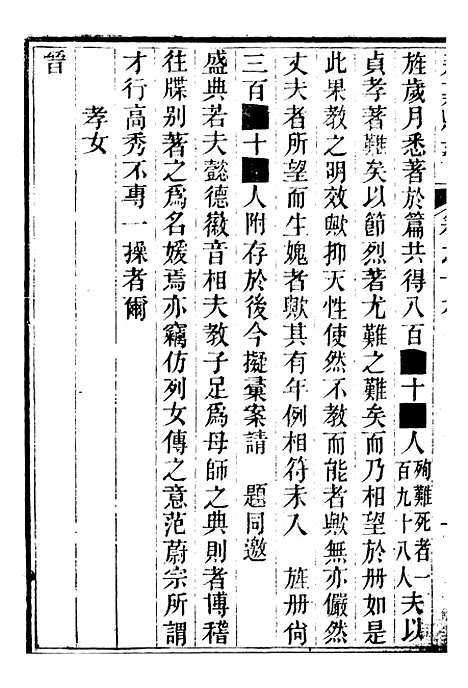 旌歲月悉著於篇共得八百■十■人殉難死者一百九十八人夫以
貞孝著難矣以節烈著尤難之難矣而乃相望於册如是
此果教之明效歟抑天性使然不教而能者歟無亦儼然
丈夫者所望而生媿者歟其有年例相符未入 旌册尙
三百■十■人附存於後今擬彙案請 題同邀
盛典若夫懿德徽音相夫教子足爲母師之典則者博稽
往牒别著之爲名媛焉亦竊仿列女傳之意范蔚宗所謂
才行高秀不專一操者爾
孝女
晉